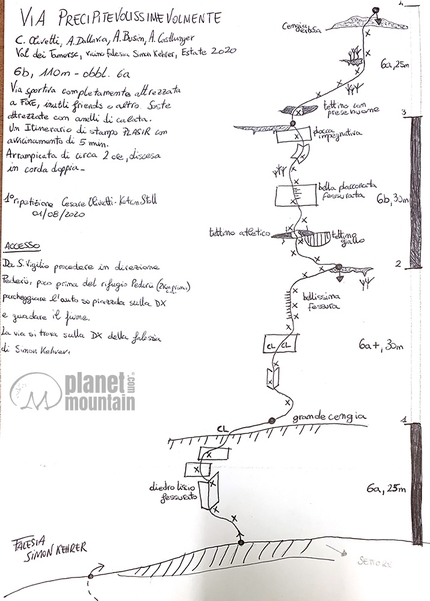 VIA PRECIPITEVOLISSIMEVOLMENTE
C. Olivetti, A. Dallavia, A. Busin, A.
Val dei Tamersc, vicino falesia Simon Kehrer, Estate 2020
6b, 110m - obbl. 6a
Via sportiva completamente attrezzata
a FIXE, inutili friends e altro. Soste
attrezzate con anelli di calata.
Un Itinerario di stampo PLAISIR con
avvicinamento di 5 min.
Arrampicata di circa 2 ore, discesa
in corda doppia.
1° ripetizione Cesare Olivetti -
01/08/2020
ACCESSO
Da S. Vigilio procedere in direzione
Pederü, poco prima del rifugio Pederü
parcheggiare l'auto se piazzola sulla DX
e guadare il fiume.
La via si trova sulla DX della falesia
di Simon Kehrer.
planet
mountain
.com
FALESIA
SIMON KEHRER
4
Cengia
6a, 25m
tettino con
3
placca
impegnativa
bella placconata
fessurata
6b, 30m
tettino atletico
tettino
giallo
2
bellissima
fessura
CL CL
6a+, 30m
grande cengia
CL
1
diedro liscio
fessurato
6a, 25m